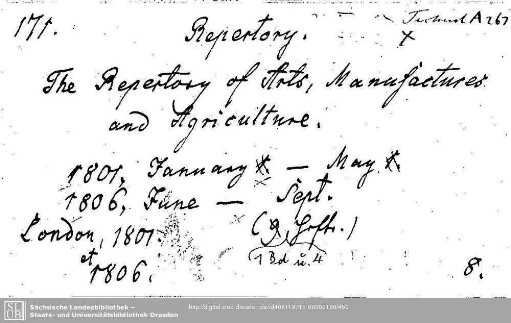 171.
Repertory.
Technol A 267
The Repertory of Arts, Manufactures
and Agriculture.
1801, January — May
1806, June — Sept.
London, 1801. (9 Hfte.)
et 1 Bd u. 4
1806. 8.
Sächsische Landesbibliothek –
Staats- und Universitätsbibliothek Dresden